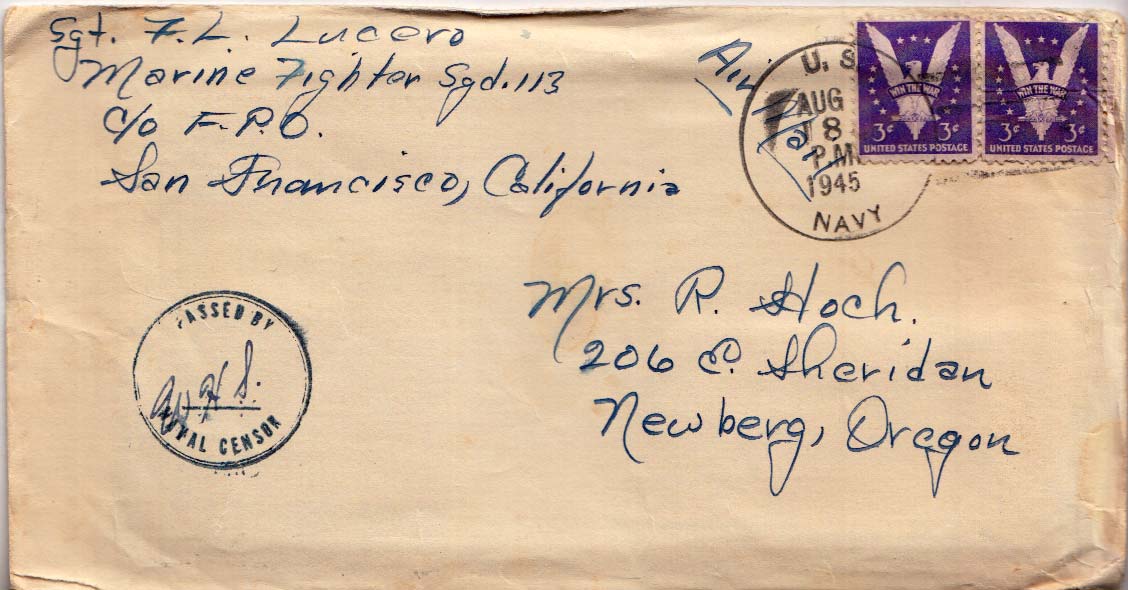 Sgt. F. L. Lucero
Marine Fighter Sqd. 113
c/o F.P.O.
San Francisco, California
Air Mail
U. S.
AUG
18
P.M
1945
NAVY
WIN THE WAR
3¢ 3¢
UNITED STATES POSTAGE
WIN THE WAR
3¢ 3¢
UNITED STATES POSTAGE
Mrs. R. Hoch.
206 E. Sheridan
Newberg, Oregon
PASSED BY
NAVAL CENSOR